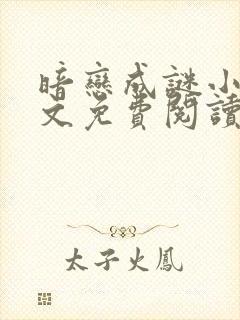 暗戀成謎小
文免費閱讀
太子火鳳